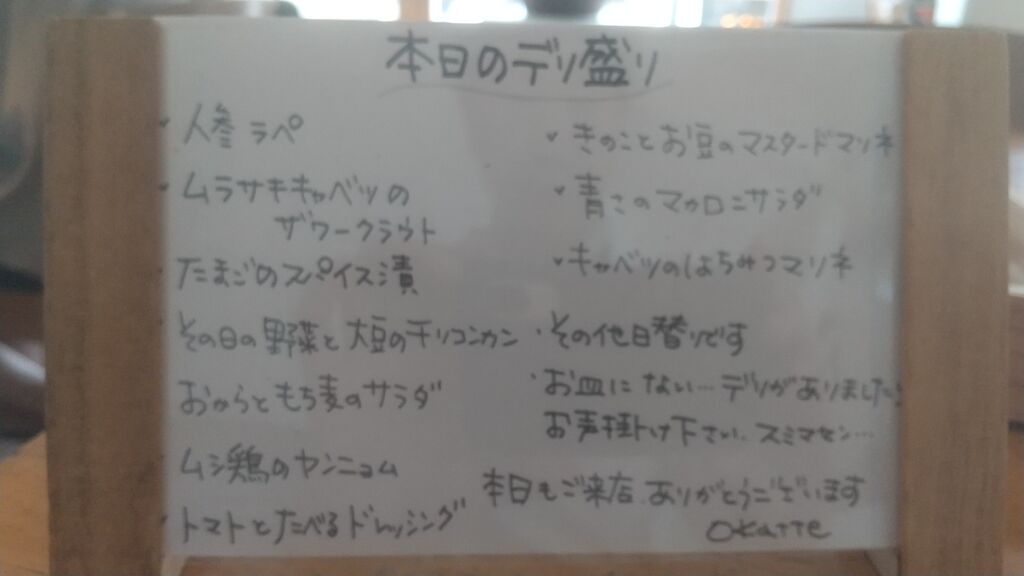 本日のデリ盛り
・人参ラペ
・ムラサキキャベツの
ザワークラウト
・たまごのスパイス漬
・その日の野菜と大豆のチリコンカン
・おからともち麦のサラダ
・ムシ鶏のヤンニョム
・トマトとたべるドレッシング
・きのことお豆のマスタードマリネ
・青さのマカロニサラダ
・キャベツのはちみつマリネ
・その他日替りです
・お皿にない…デリがありましたら
お声掛け下さい、スミマセン…
本日もご来店、ありがとうございます
okatte